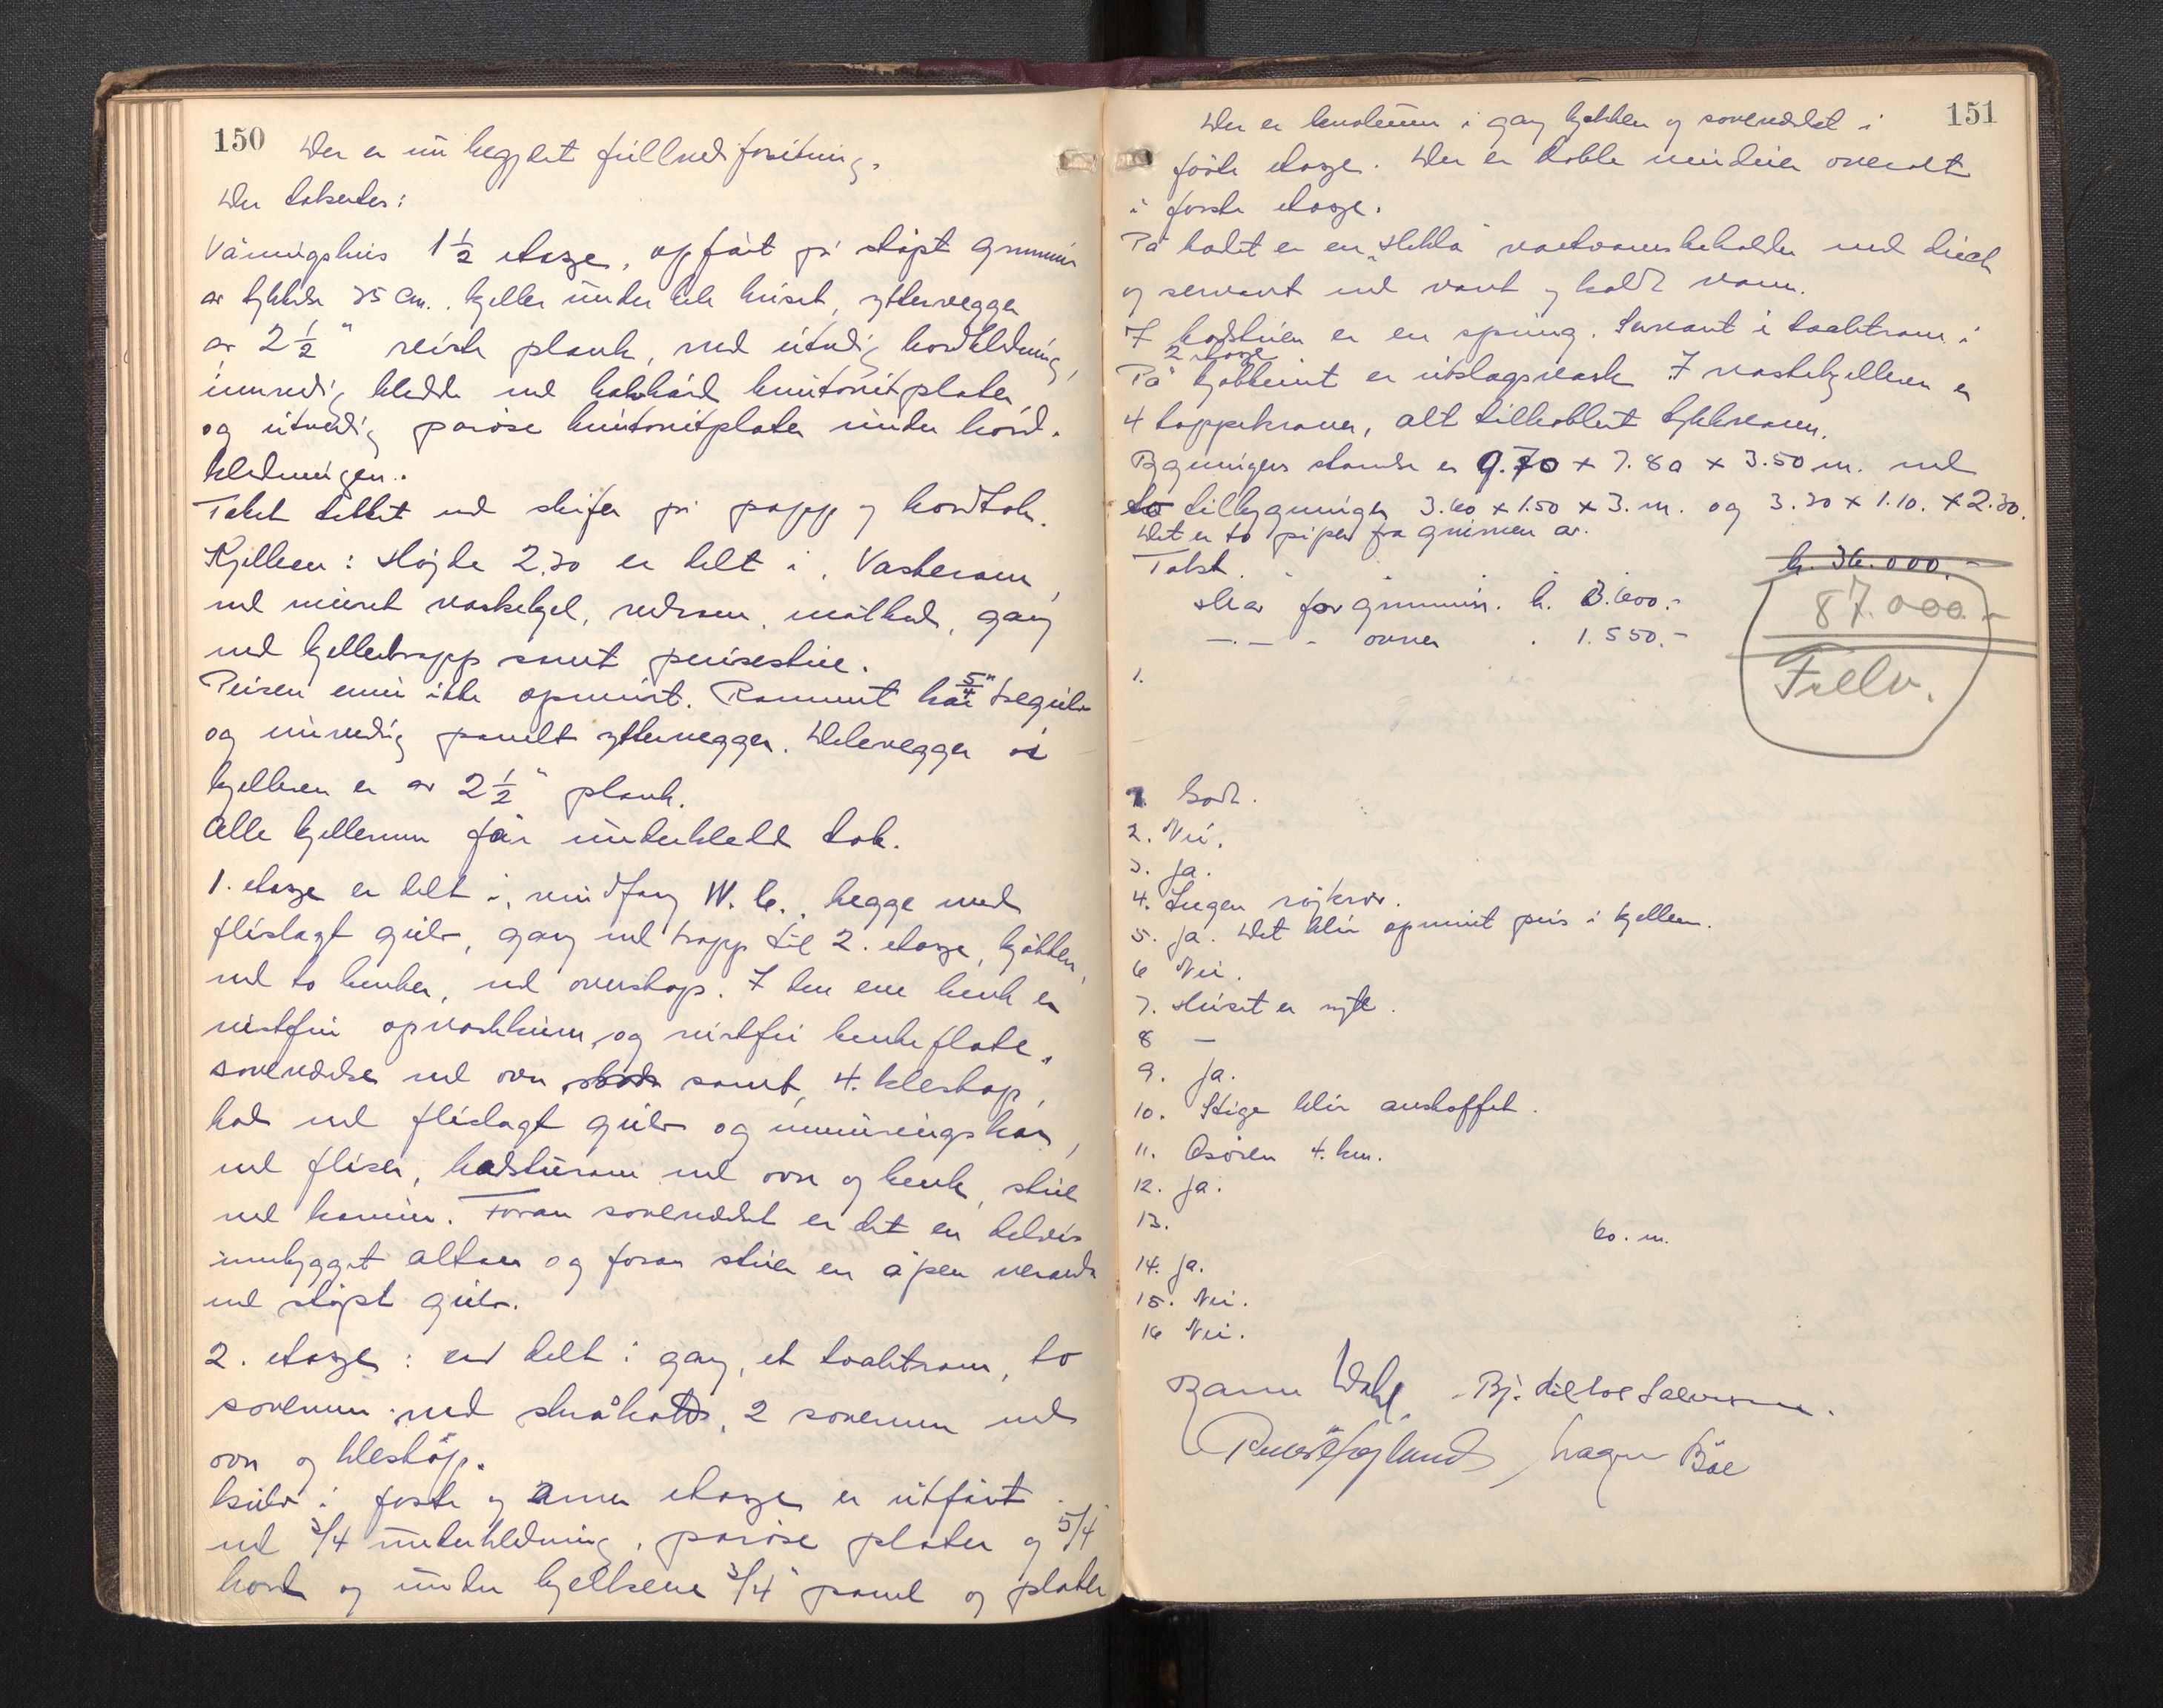 150
Der er nu begjert fullverdiforsikring.
Der takseres:
Våningshus 1 1/2 etasje, opført på støpt grunnmur
av tykkelse 25 cm. kjeller under hele huset, yttervegger
av 2 1/2" reiste plank, med utvendig bordkledning,
innvendig kledde med halvhård huntonitplater
og utvendig porøse huntonitplater under bord-
kledningen.
Taket tekket med skifer på papp og bordtak.
Kjelleren: Højde 2,30 er delt i, Vaskerom
med muret vaskekjel, vedrom, matbod, gang
med kjellertrapp samt peisestue.
Peisen ennu ikke opmurt. Rommet har 5/4" tregulv
og innvendig panelt yttervegger. Delevegger i
kjelleren er av 2 1/2" plank.
Alle kjellerrum får underkledd tak.
1. etasje er delt i, vindfang W.C., begge med
flislagt gulv, gang med trapp til 2. etasje, kjøkken,
med to benker, med overskap. I den ene benk er
rustfri opvaskkum, og rustfri benkeflate,
soveværelse med ovn samt 4. kleskap,
bad med flislagt gulv og innmuringskar,
med fliser, badsturom med ovn og benk, stue
med kamin. Foran soveværelset er det en delvis
innbygget altan og foran stuen en åpen veranda
med støpt gulv.
2. etasje: er delt i gang, et toalettrom, to
soverum med skråbods, 2 soverum med
ovn og kleskåp.
Gulv i første og annen etasje er utført
med 3/4 underkledning, porøse plater og 5/4
bord og under bjelkene 3/4" panel og plater
151
Der er linoleum i gang kjøkken og soveværelset i
første etasje. Der er doble vinduer overalt
i første etasje.
På badet er en "Høkla" varmtvannsbeholder med dusch
og servant med varmt og kaldt vann.
I badstuen er en spring. Servant i toalettrom i
2 etasje
På kjøkkenet er utslagsvask. I vaskekjelleren er
4 tappekraner, alt tilkoblet trykkvann.
Bygningens størrelse er 9.70 x 7.80 x 3.50 m. med
to tilbygninger 3.60 x 1.50 x 3. m. og 3.30 x 1.10. x 2.30.
Det er to piper fra grunnen av.
Takst. kr. 36.000.-
Herav for grunnmur. kr. 3.600.-
—.— - ovner . 1.550.-
87.000.-
Fullv.
1.
1. Godt.
2. Nei.
3. Ja.
4. Ingen røykrør.
5. Ja. Det blir opmuret peis i kjelleren.
6 Nei.
7. Huset er nytt.
8 —
9. Ja.
10. Stige blir anskaffet.
11. Osøren 4. km.
12. Ja.
13. 60. m.
14. Ja.
15. Nei.
16 Nei.
Bj.
Bøe